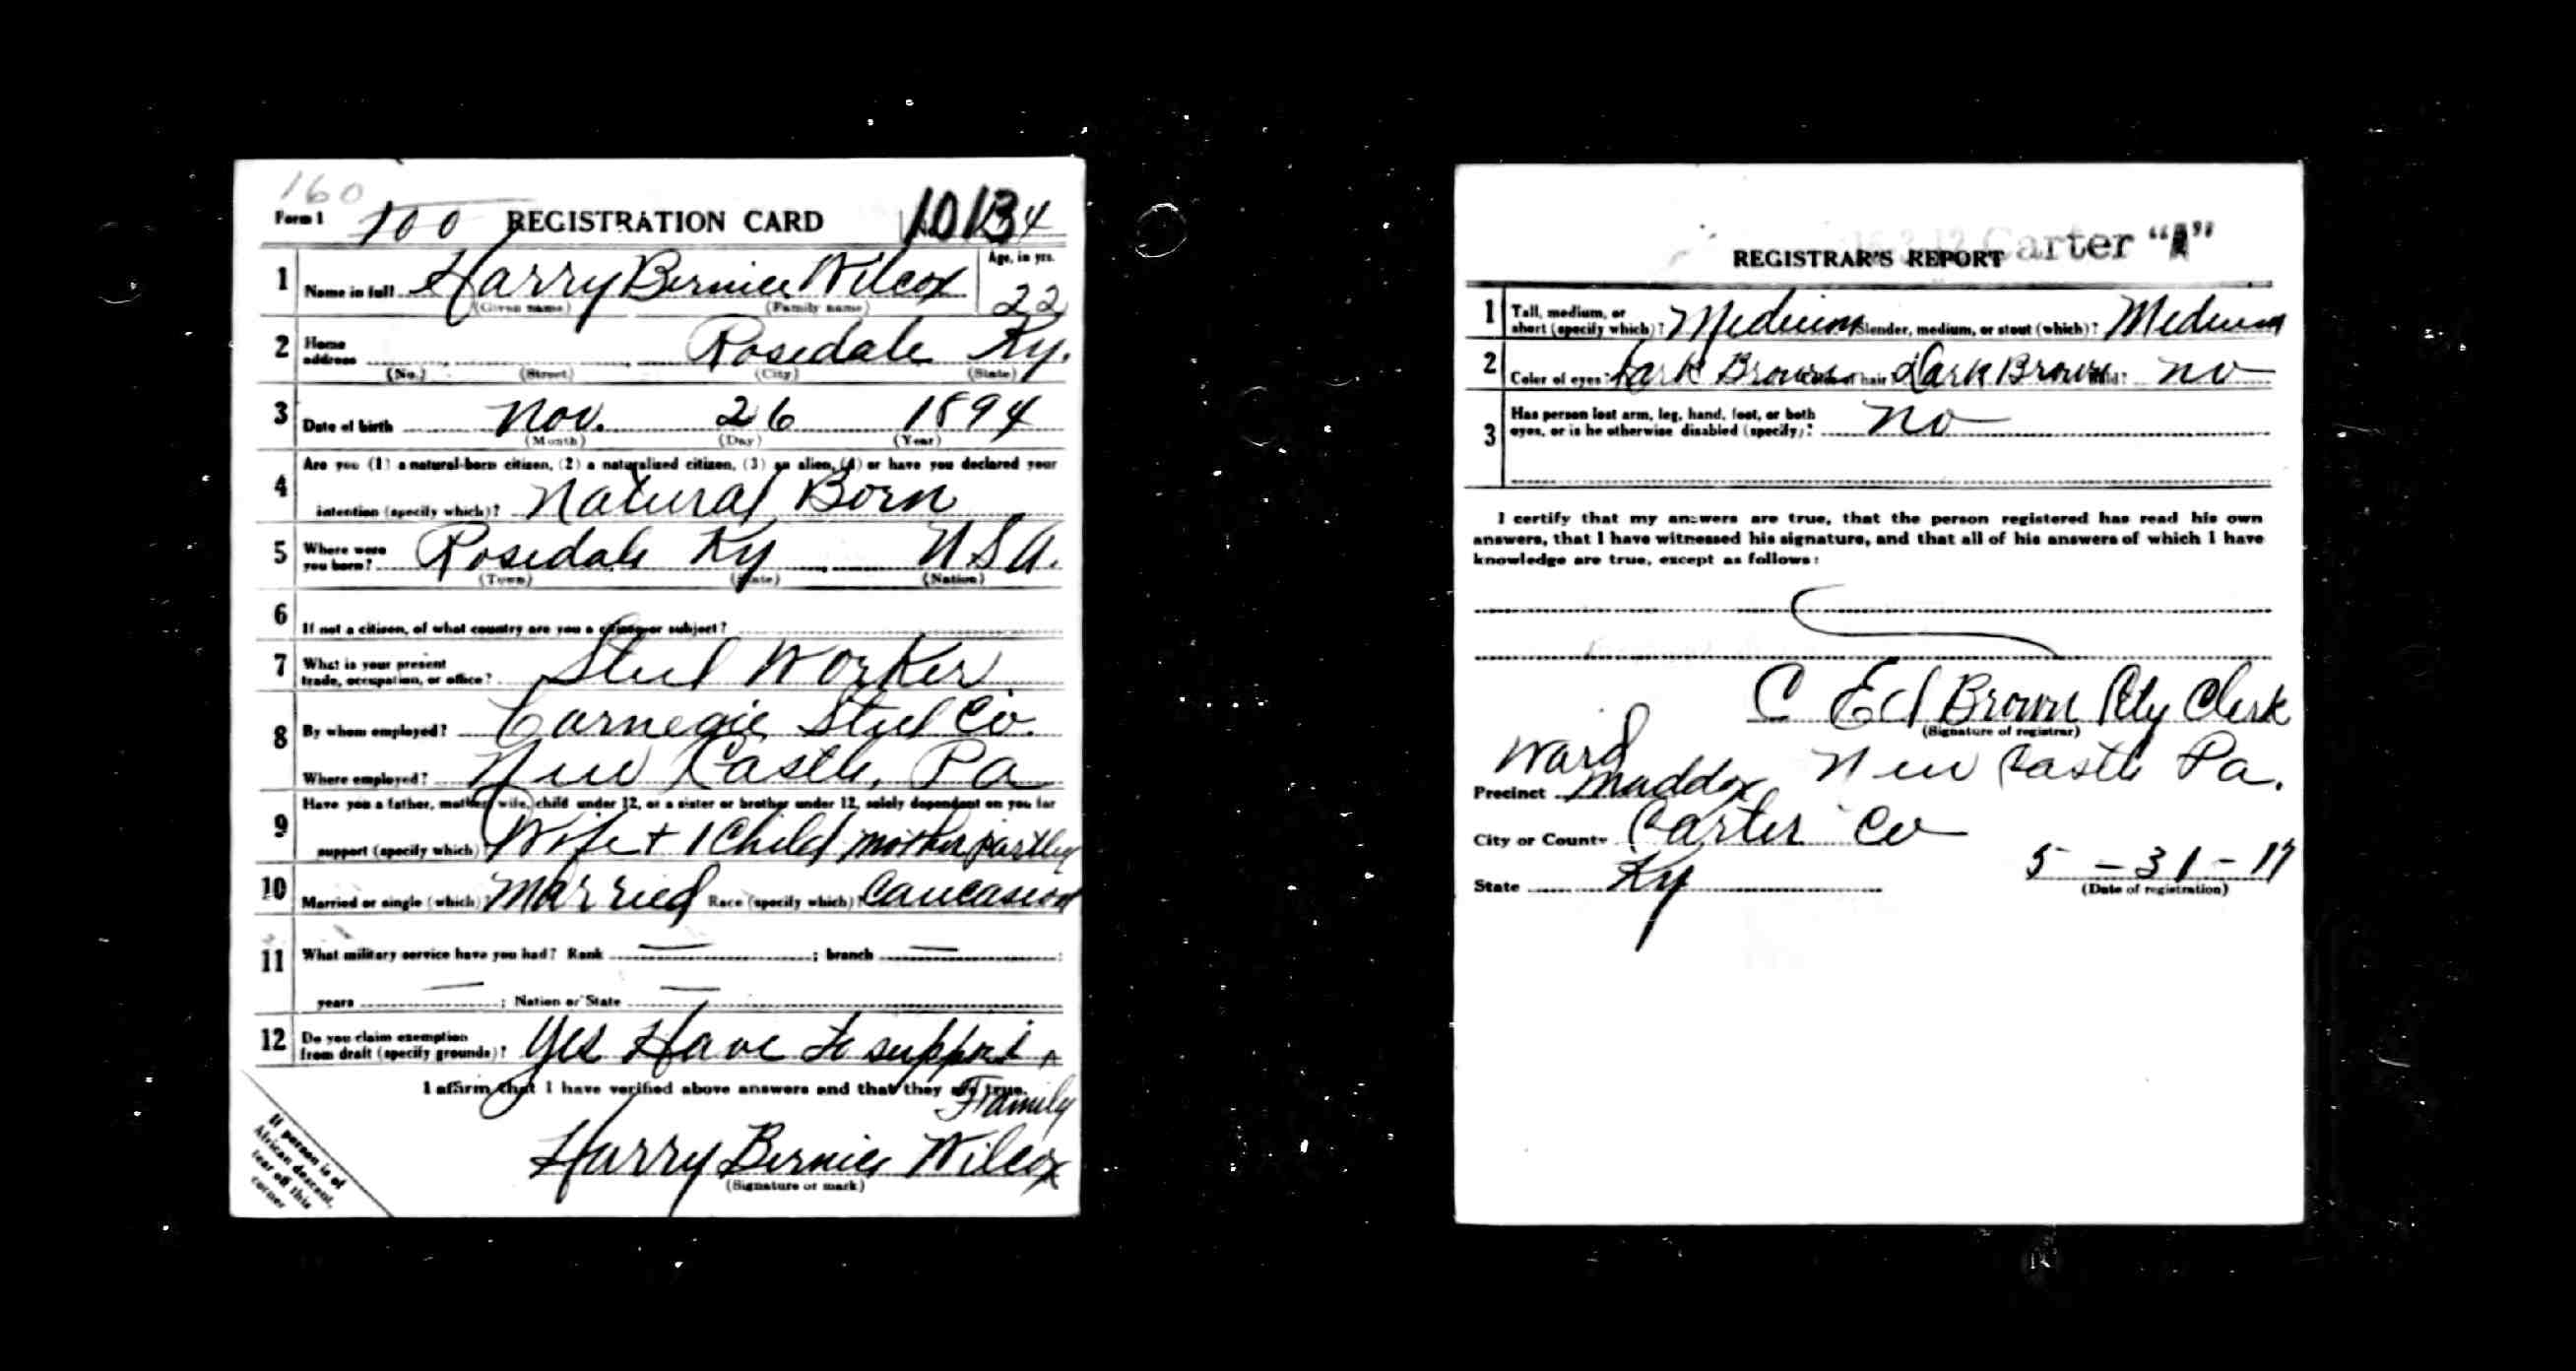 160
Form 1 100 REGISTRATION CARD
1 Name in full Harry Bernice Wilcox Age, in yrs. 22
(Given name) (Family name)
2 Home address Rosedale Ky.
(No.) (Street) (City) (State)
3 Date of birth Nov. 26 1894
(Month) (Day) (Year)
Are you (1) a natural-born citizen, (2) a naturalized citizen, (3) an alien, (4) or have you declared your
4 intention (specify which)? Natural Born
5 Where were you born? Rosedale Ky U S A.
(Town) (State) (Nation)
6 If not a citizen, of what country are you a citizen or subject?
7 What is your present trade, occupation, or office? Steel Worker
8 By whom employed? Carnegie Steel Co.
Where employed? New Castle, Pa
Have you a father, mother, wife, child under 12, or a sister or brother under 12, solely dependent on you for
9 support (specify which)? Wife + 1 Child mother partley
10 Married or single (which)? Married Race (specify which)? Caucasion
11 What military service have you had? Rank — ; branch — ;
years — ; Nation or State —
12 Do you claim exemption from draft (specify grounds)? Yes Have to support a
I affirm that I have verified above answers and that they are true.
Family
Harry Bernice Wilcox
(Signature or mark)
If person is of
African descent,
tear off this
corner
Carter "A"
REGISTRAR'S REPORT
1 Tall, medium, or short (specify which)? Medium Slender, medium, or stout (which)? Medium
2 Color of eyes? Dark Brown Color of hair? Dark Brown Bald? no
3 Has person lost arm, leg, hand, foot, or both
eyes, or is he otherwise disabled (specify)? no
I certify that my answers are true, that the person registered has read his own
answers, that I have witnessed his signature, and that all of his answers of which I have
knowledge are true, except as follows:
C Ed Brown Cty Clerk
(Signature of registrar)
Ward
Precinct Maddox New Castle Pa.
City or County Carter Co
State Ky 5-31-17
(Date of registration)